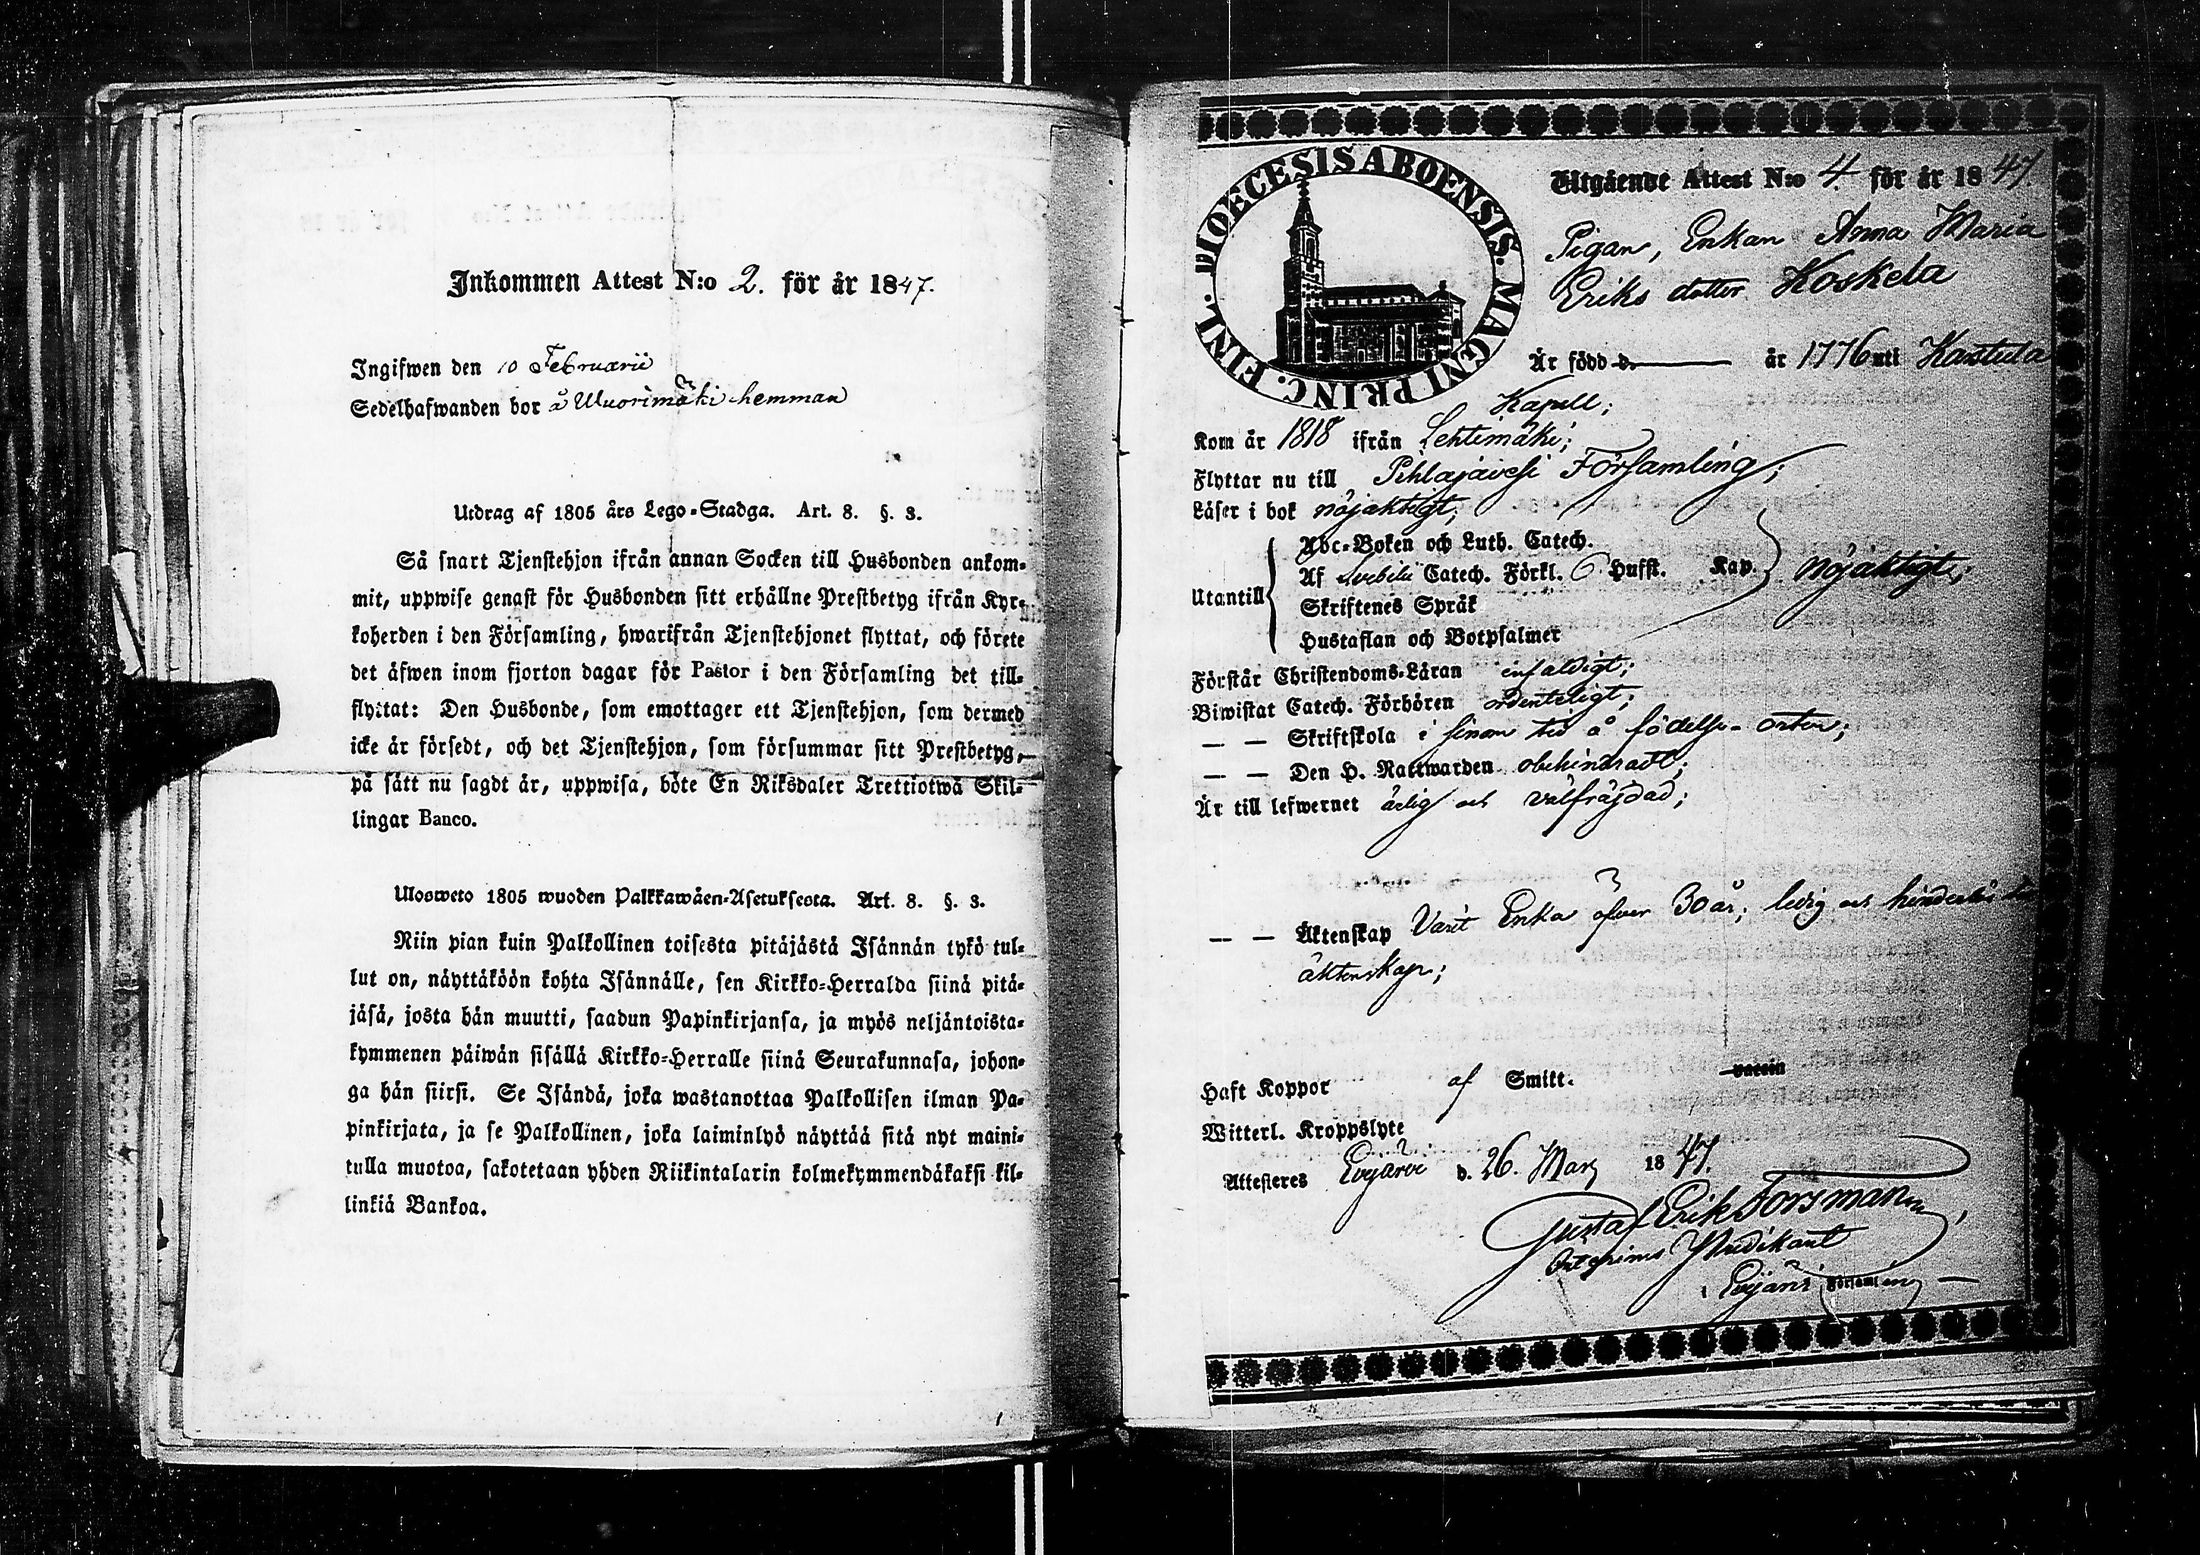 Inkommen Attest N:o 2. för år 1847.
Ingifwen den 10 Februarii
Sedelhafwanden bor å Wuorimäki hemman
Utdrag af 1805 års Lego-Stadga. Art. 8. §. 3.
Så snart Tjenstehjon ifrån annan Socken till Husbonden ankom-
mit, uppwise genast för Husbonden sitt erhållne Prestbetyg ifrån Kyr-
koherden i den Församling, hwarifrån Tjenstehjonet flyttat, och förete
det äfwen inom fjorton dagar för Pastor i den Församling det till-
flyttat: Den Husbonde, som emottager ett Tjenstehjon, som dermed
icke är försedt, och det Tjenstehjon, som försummar sitt Prestbetyg,
på sätt nu sagdt är, uppwisa, böte En Riksdaler Trettiotwå Skil-
lingar Banco.
Ulosweto 1805 wuoden Palkkawäen-Asetuksesta. Art. 8. §. 3.
Niin pian kuin Palkollinen toisesta pitäjästä Isännän tykö tul-
lut on, näyttäköön kohta Isännälle, sen Kirkko-Herralda siinä pitä-
jäsä, josta hän muutti, saadun Papinkirjansa, ja myös neljäntoista-
kymmenen päiwän sisällä Kirkko-Herralle siinä Seurakunnasa, johon-
ga hän siirsi. Se Isändä, joka wastanottaa Palkollisen ilman Pa-
pinkirjata, ja se Palkollinen, joka laiminlyö näyttää sitä nyt maini-
tulla muotoa, sakotetaan yhden Riikintalarin kolmekymmendäkaksi kil-
linkiä Bankoa.
DIOECESIS ABOENSIS. MAGNI PRINC. FINL.
Utgående Attest N:o 4. för år 1847
Pigan, Enkan Anna Maria
Eriks dotter Koskela
Är född d. år 1776 uti Karstula
Kapell;
Kom år 1818 ifrån Lehtimäki;
Flyttar nu till Pihlajavesi Församling;
Läser i bok nöjaktigt;
Utantill
Abc-Boken och Luth. Catech.
Af Svebilii Catech. Förkl. 6 Hufst. Kap. nöjaktigt;
Skriftenes Språk
Hustaflan och Botpsalmer
Förstår Christendoms-Läran enfaldigt;
Biwistat Catech. Förhören ordenteligt;
— — Skriftskola i sinom tid å födelse-orten;
— — Den H. Nattwarden obehindradt;
Är till lefwernet ärlig och välfräjdad;
— — Äktenskap Varit Enka öfver 30 år; ledig och hinderlös till
äktenskap;
Haft Koppor af Smitt. vaccin
Witterl. Kroppslyte
Attesteres Evijärvi d. 26. Mars 1847.
Gustaf Erik Forsman,
Interims Predikant
i Evijärvi Församling